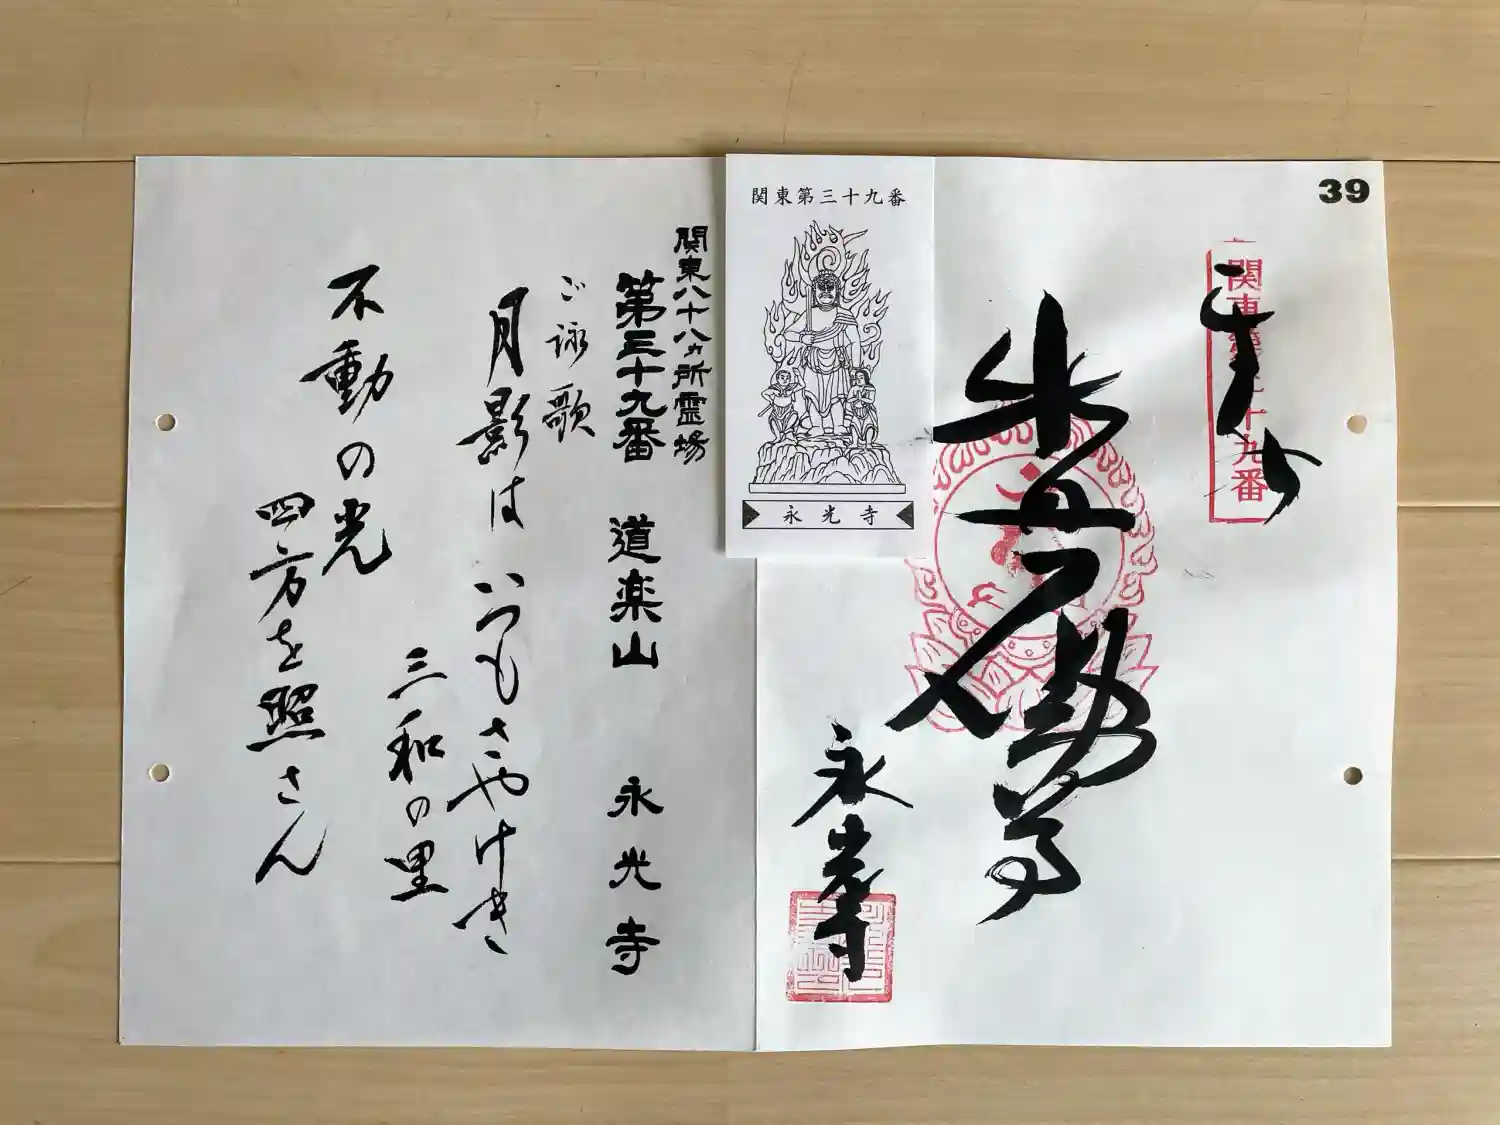 39
奉拝
関東第三十九番
不動尊
永光寺
関東第三十九番
永光寺
関東八十八ヵ所霊場
第三十九番 道楽山 永光寺
ご詠歌
月影は いつもさやけき
三和の里
不動の光
四方を照さん